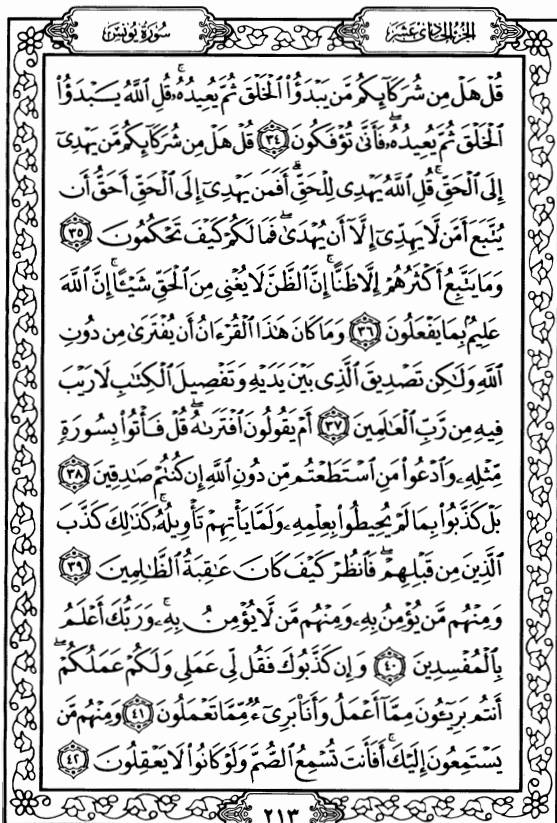 الجزء الحادي عشر
سورة يونس
قُلْ هَلْ مِن شُرَكَآئِكُم مَّن يَبْدَؤُا۟ ٱلْخَلْقَ ثُمَّ يُعِيدُهُۥۚ قُلِ ٱللَّهُ يَبْدَؤُا۟
ٱلْخَلْقَ ثُمَّ يُعِيدُهُۥۖ فَأَنَّىٰ تُؤْفَكُونَ ٣٤ قُلْ هَلْ مِن شُرَكَآئِكُم مَّن يَهْدِىٓ
إِلَى ٱلْحَقِّۚ قُلِ ٱللَّهُ يَهْدِى لِلْحَقِّۗ أَفَمَن يَهْدِىٓ إِلَى ٱلْحَقِّ أَحَقُّ أَن
يُتَّبَعَ أَمَّن لَّا يَهِدِّىٓ إِلَّآ أَن يُهْدَىٰۖ فَمَا لَكُمْ كَيْفَ تَحْكُمُونَ ٣٥
وَمَا يَتَّبِعُ أَكْثَرُهُمْ إِلَّا ظَنًّاۚ إِنَّ ٱلظَّنَّ لَا يُغْنِى مِنَ ٱلْحَقِّ شَيْـًٔاۚ إِنَّ ٱللَّهَ
عَلِيمٌۢ بِمَا يَفْعَلُونَ ٣٦ وَمَا كَانَ هَٰذَا ٱلْقُرْءَانُ أَن يُفْتَرَىٰ مِن دُونِ
ٱللَّهِ وَلَٰكِن تَصْدِيقَ ٱلَّذِى بَيْنَ يَدَيْهِ وَتَفْصِيلَ ٱلْكِتَٰبِ لَا رَيْبَ
فِيهِ مِن رَّبِّ ٱلْعَٰلَمِينَ ٣٧ أَمْ يَقُولُونَ ٱفْتَرَىٰهُۖ قُلْ فَأْتُوا۟ بِسُورَةٍ
مِّثْلِهِۦ وَٱدْعُوا۟ مَنِ ٱسْتَطَعْتُم مِّن دُونِ ٱللَّهِ إِن كُنتُمْ صَٰدِقِينَ ٣٨
بَلْ كَذَّبُوا۟ بِمَا لَمْ يُحِيطُوا۟ بِعِلْمِهِۦ وَلَمَّا يَأْتِهِمْ تَأْوِيلُهُۥۚ كَذَٰلِكَ كَذَّبَ
ٱلَّذِينَ مِن قَبْلِهِمْۖ فَٱنظُرْ كَيْفَ كَانَ عَٰقِبَةُ ٱلظَّٰلِمِينَ ٣٩
وَمِنْهُم مَّن يُؤْمِنُ بِهِۦ وَمِنْهُم مَّن لَّا يُؤْمِنُ بِهِۦۚ وَرَبُّكَ أَعْلَمُ
بِٱلْمُفْسِدِينَ ٤٠ وَإِن كَذَّبُوكَ فَقُل لِّى عَمَلِى وَلَكُمْ عَمَلُكُمْۖ
أَنتُم بَرِيٓـُٔونَ مِمَّآ أَعْمَلُ وَأَنَا۠ بَرِىٓءٌ مِّمَّا تَعْمَلُونَ ٤١ وَمِنْهُم مَّن
يَسْتَمِعُونَ إِلَيْكَۚ أَفَأَنتَ تُسْمِعُ ٱلصُّمَّ وَلَوْ كَانُوا۟ لَا يَعْقِلُونَ ٤٢
٢١٣